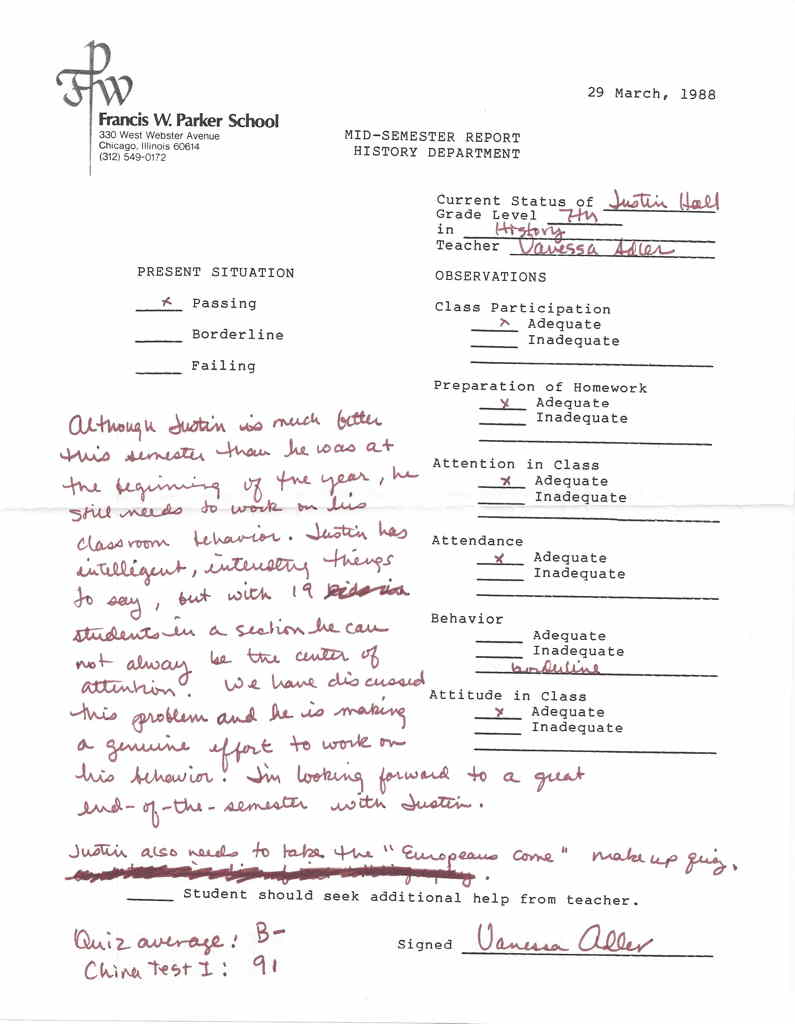 FPW
Francis W. Parker School
330 West Webster Avenue
Chicago, Illinois 60614
(312) 549-0172
29 March, 1988
MID-SEMESTER REPORT
HISTORY DEPARTMENT
Current Status of Justin Hall
Grade Level 7th
in History
Teacher Vanessa Adler
PRESENT SITUATION
x Passing
Borderline
Failing
OBSERVATIONS
Class Participation
x Adequate
Inadequate
Preparation of Homework
x Adequate
Inadequate
Attention in Class
x Adequate
Inadequate
Attendance
x Adequate
Inadequate
Behavior
Adequate
Inadequate
borderline
Attitude in Class
x Adequate
Inadequate
Although Justin is much better
this semester than he was at
the beginning of the year, he
still needs to work on his
classroom behavior. Justin has
intelligent, interesting things
to say, but with 19
students in a section he can
not alway be the center of
attention. We have discussed
this problem and he is making
a genuine effort to work on
his behavior. I'm looking forward to a great
end-of-the-semester with Justin.
Justin also needs to take the "Europeans Come" make up quiz.
Student should seek additional help from teacher.
Quiz average: B-
China Test I: 91
Signed Vanessa Adler